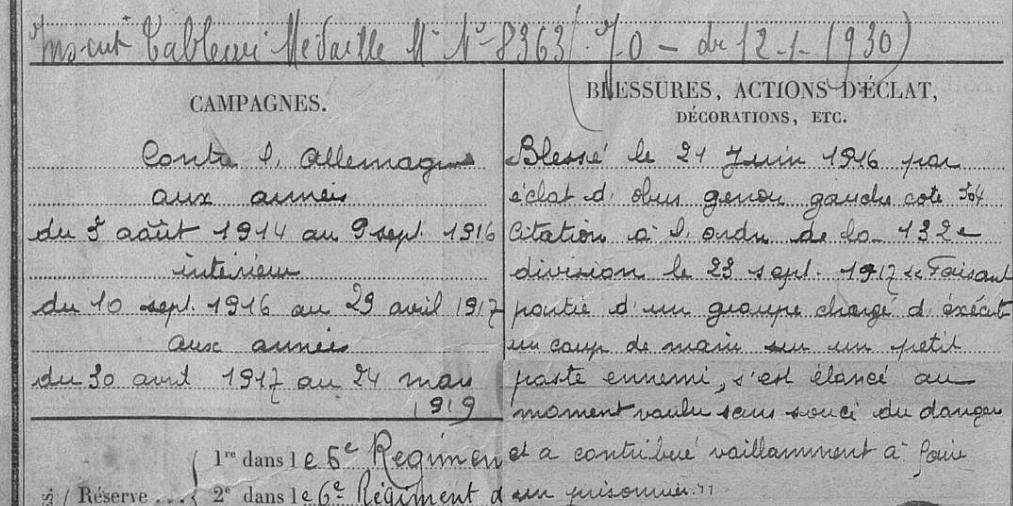 Inscrit Tableau Médaille Mre No 8363 (J.O - du 12-1-1930)
CAMPAGNES.
Contre l'Allemagne
aux armées
du 3 août 1914 au 9 sept. 1916
intérieur
du 10 sept. 1916 au 29 avril 1917
aux armées
du 30 avril 1917 au 24 mars
1919
BLESSURES, ACTIONS D'ÉCLAT,
DÉCORATIONS, ETC.
Blessé le 21 Juin 1916 par
éclat d'obus genou gauche cote 304
Citation à l'ordre de la 132e
division le 23 sept. 1917 "Faisant
partie d'un groupe chargé d'éxécuter
un coup de main sur un petit
poste ennemi, s'est élancé au
moment voulu sans souci du danger
et a contribué vaillamment à faire
un prisonnier."
1re dans le 6e Régiment
Réserve ... 2e dans le 6e Régiment d